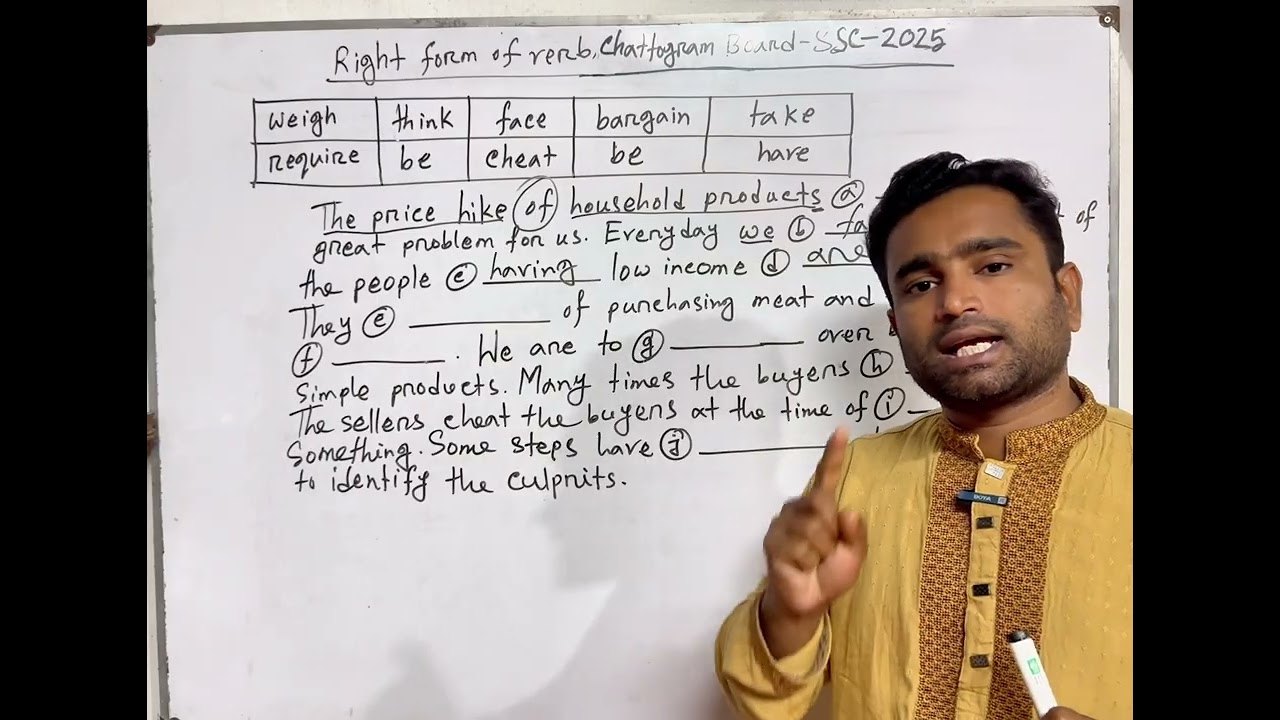 Right form of verb, Chattogram Board-SSC-2025
weigh think face bargain take
require be cheat be have
The price hike of household products ⓐ
great problem for us. Everyday we ⓑ fa of
the people ⓒ having low income ⓓ are
They ⓔ ________ of purchasing meat and
ⓕ ________. We are to ⓖ ________ over
simple products. Many times the buyers ⓗ
The sellers cheat the buyers at the time of ⓘ
Something. Some steps have ⓙ ________
to identify the culprits.
BOYA